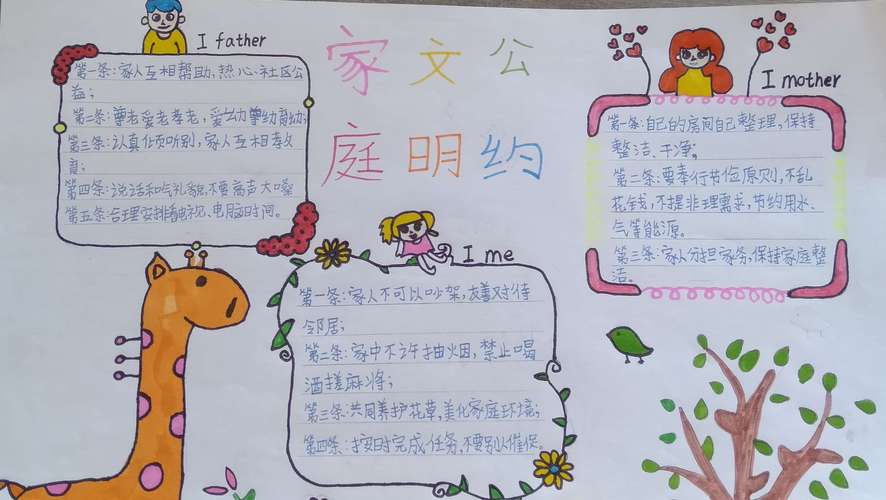 家文公
庭明约
I father
第一条:家人互相帮助,热心社区公
益;
第二条:尊老爱老孝老,爱幼尊幼育幼;
第三条:认真倾听别,家人互相孝
育;
第四条:说话和气礼貌,不要高声大嗓
第五条:合理安排看电视、电脑时间。
I me
第一条:家人不可以吵架,友善对待
邻居;
第二条:家中不许抽烟,禁止喝
酒搓麻将;
第三条:共同养护花草,美化家庭环境;
第四条:按时完成任务,不要别人催促。
I mother
第一条:自己的房间自己整理,保持
整洁、干净;
第二条:要奉行节俭原则,不乱
花钱,不提非理需求,节约用水、
气等能源。
第三条:家人分担家务,保持家庭整
洁。